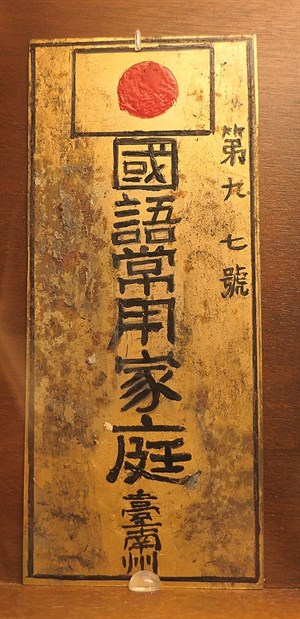 第九七號
國語常用家庭
臺南州